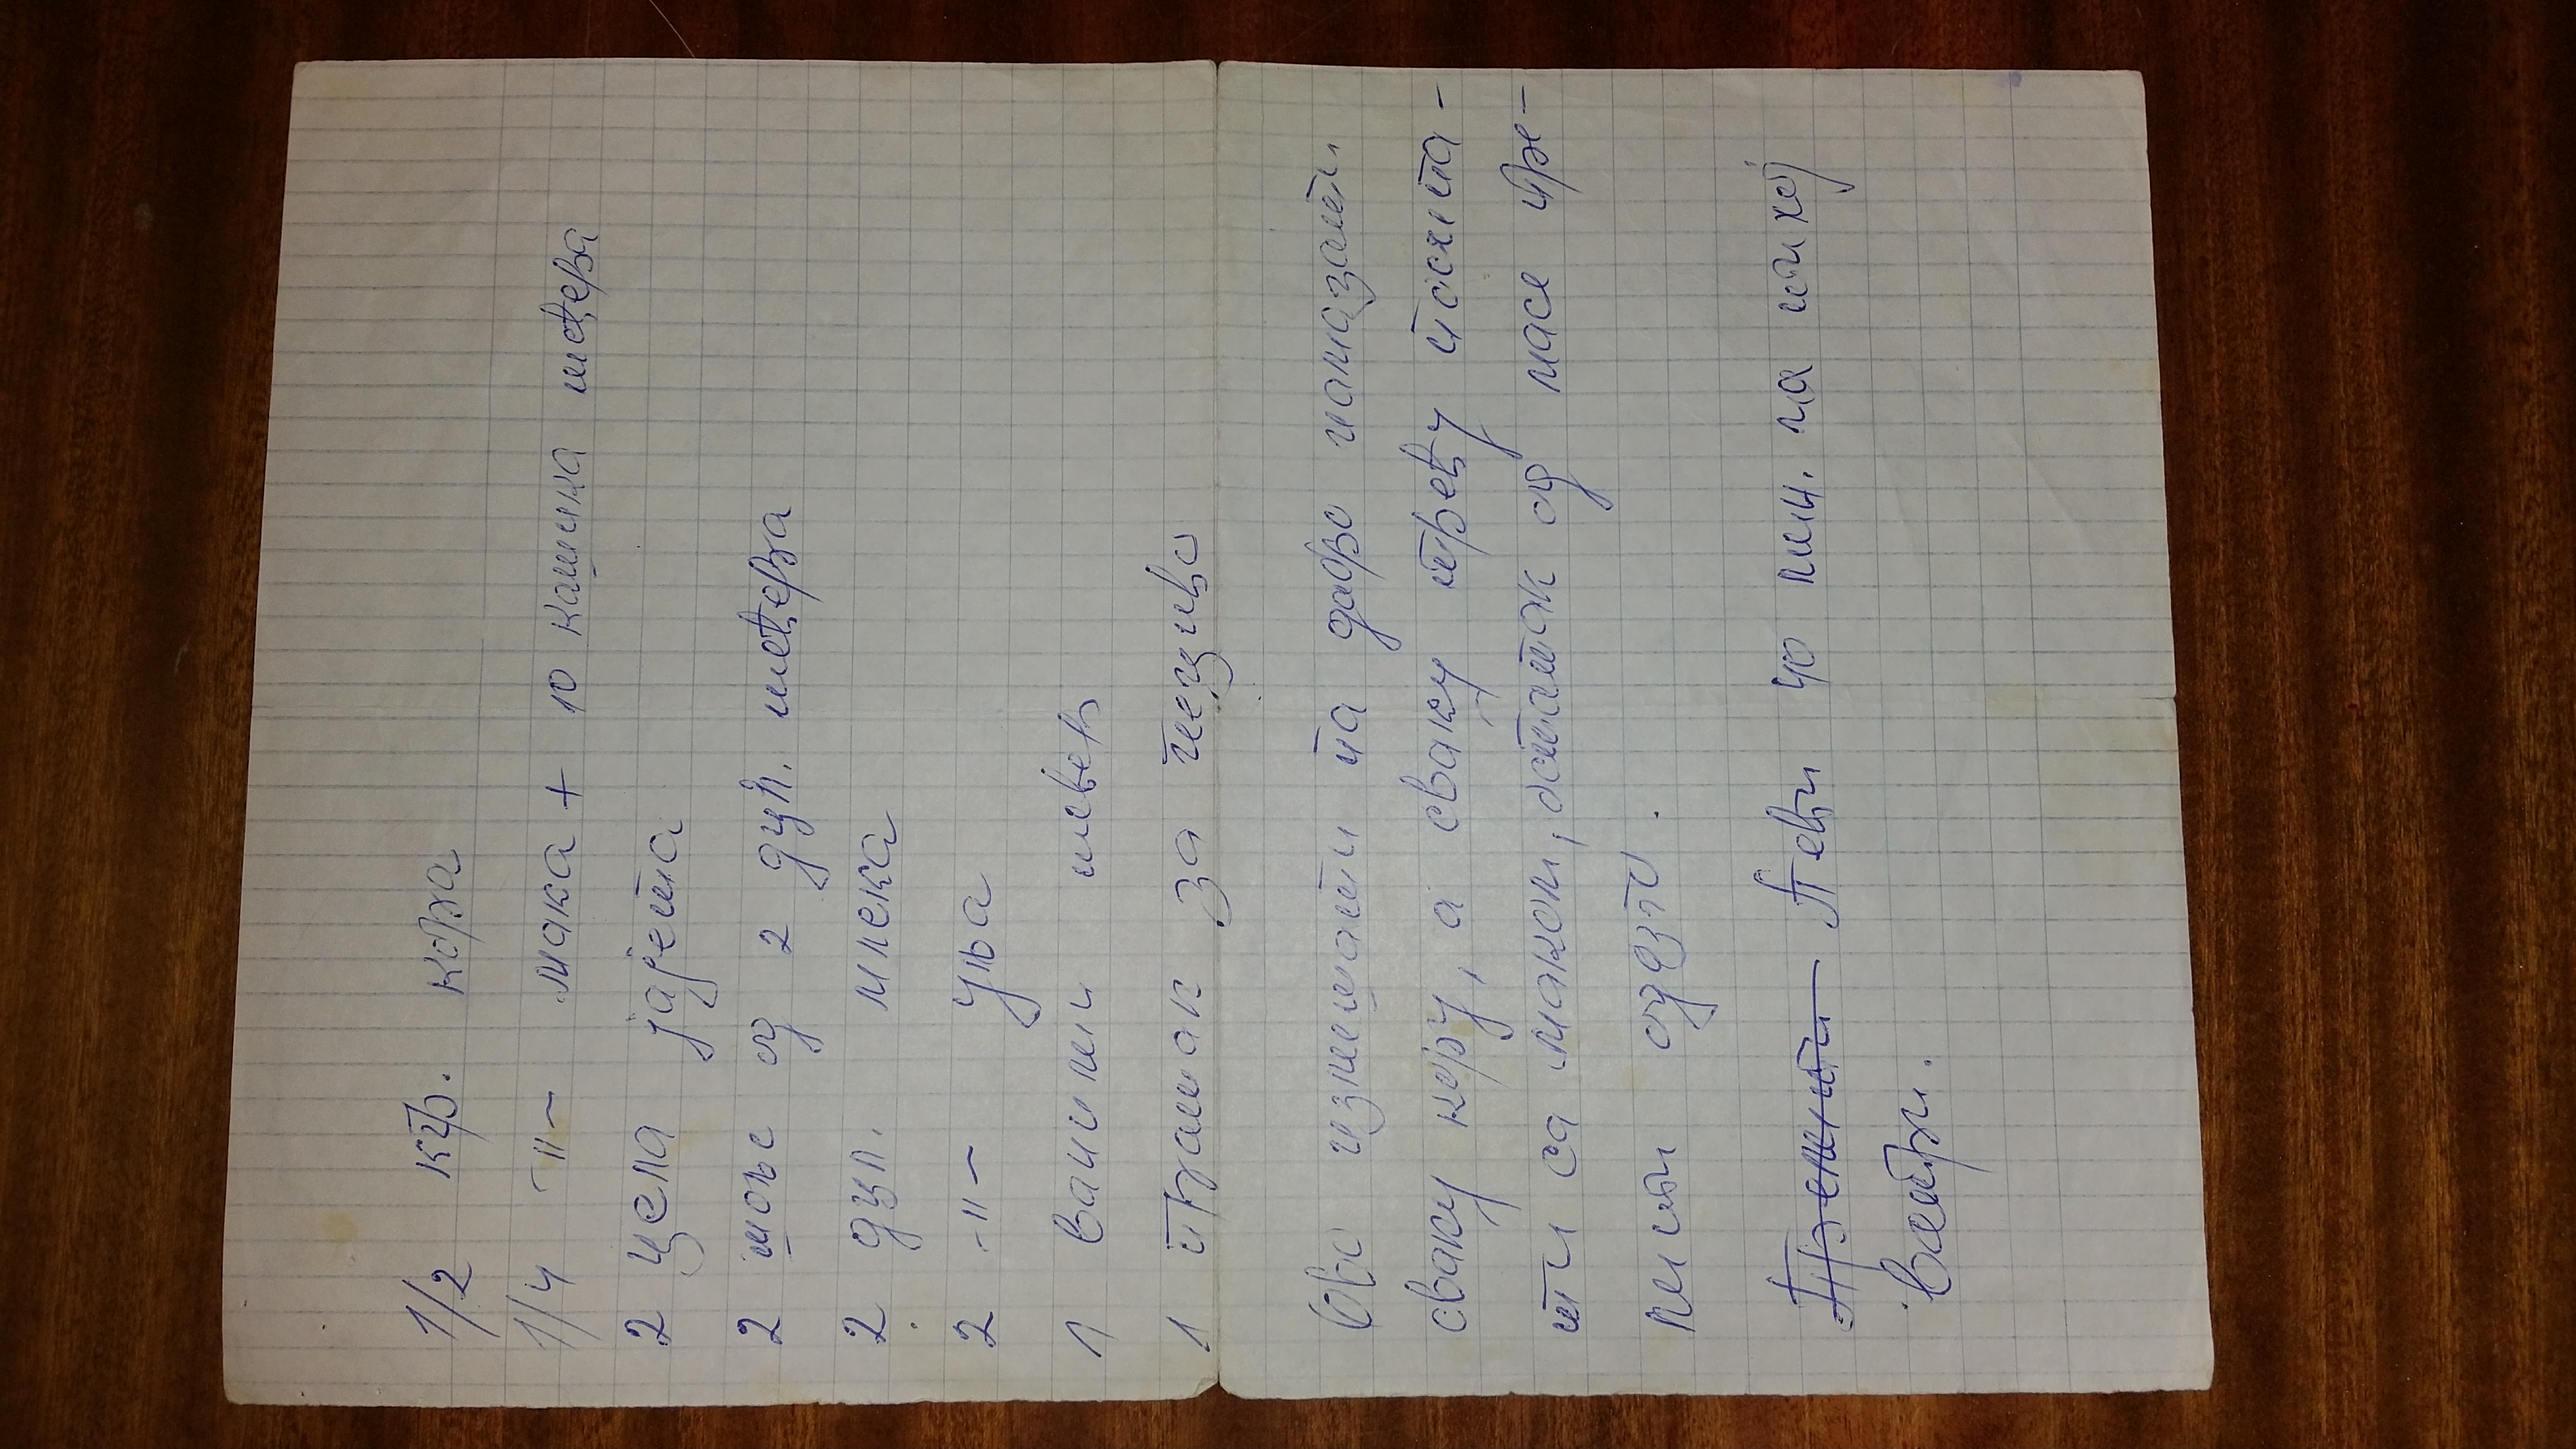 1/2 кгр. кора
1/4 -"- мака + 10 кашика шећера
2 цела јајета
2 шоље од 2 дцл. шећера
2 дцл. млека
2 -"- уља
1 ванилин шећер
1 прашак за пециво
Ово измешати па добро намазати
сваку кору, а сваку трећу посипа-
ти са маком, остатак од масе пре-
лити одозго.
Пећи 40 мин. на тихој
ватри.